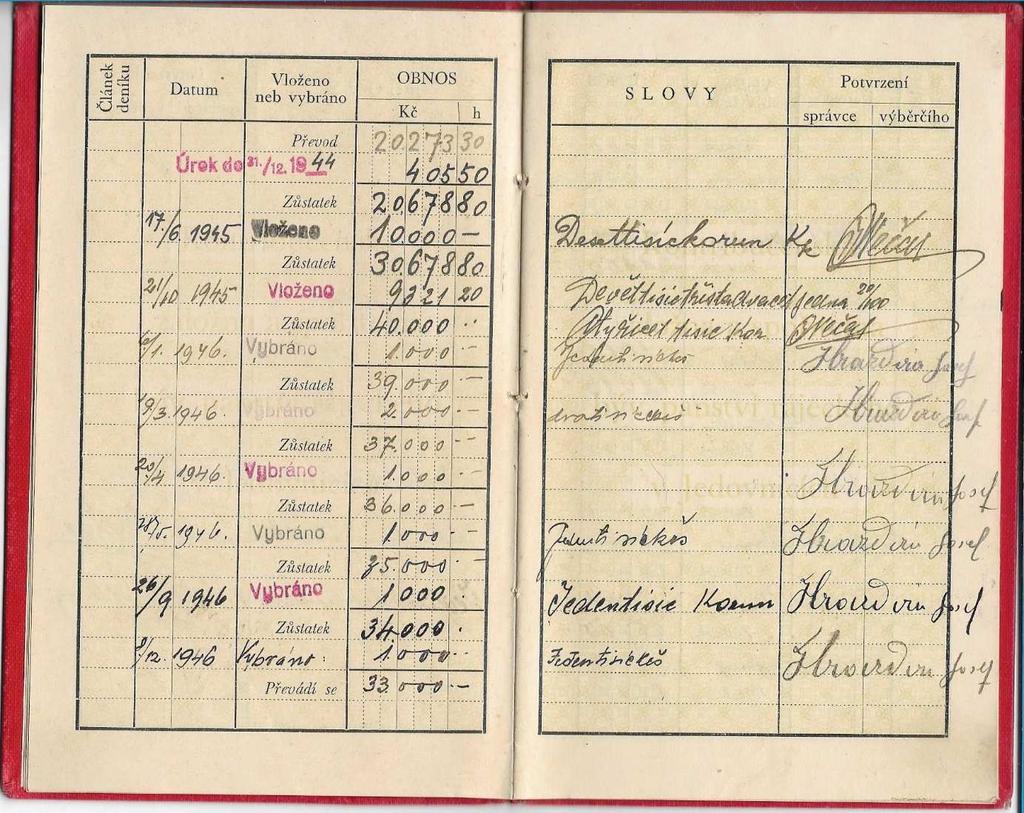 Článek deníku Datum Vloženo neb vybráno OBNOS Kč h
SLOVY Potvrzení správce výběrčího
Převod 20.273 30
Úrok do 31./12. 1944 405 50
Zůstatek 20.678 80
17./6 1945 Vloženo 10.000 – Desettisíckorun Kč
Zůstatek 30.678 80
21/10 1945 Vloženo 9321 20 Devěttisictřistadvacetjedna 20/100
Zůstatek 40.000 Čtyřicet tisíc Kor
/1. 1946. Vybráno 1.000 – Josef
Zůstatek 39.000 –
/3. 1946. Vybráno 2.000 –
Zůstatek 37.000 –
20/4 1946. Vybráno 1.000 – Josef
Zůstatek 36.000 –
28/5. 1946. Vybráno 1.000 – Josef
Zůstatek 35.000 –
26/9 1946 Vybráno 1000 Jedentisíc Korun Josef
Zůstatek 34.000
/12. 1946 Vybráno: 1.000 – Josef
Převádí se 33.000 –